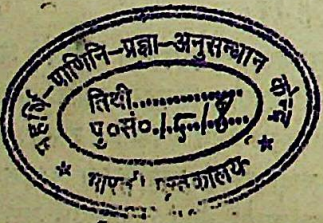 महर्षि-पाणिनि-प्रज्ञा-अनुसन्धान केन्द्र
तिथी..............
पु०सं०
* पुस्तकालय *